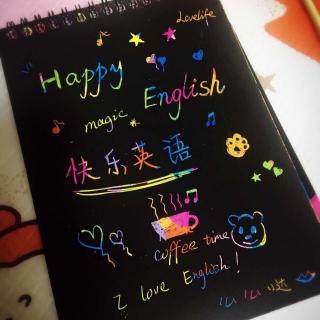 Lovelife
Happy
English
magic
快乐英语
coffee time
I love English!